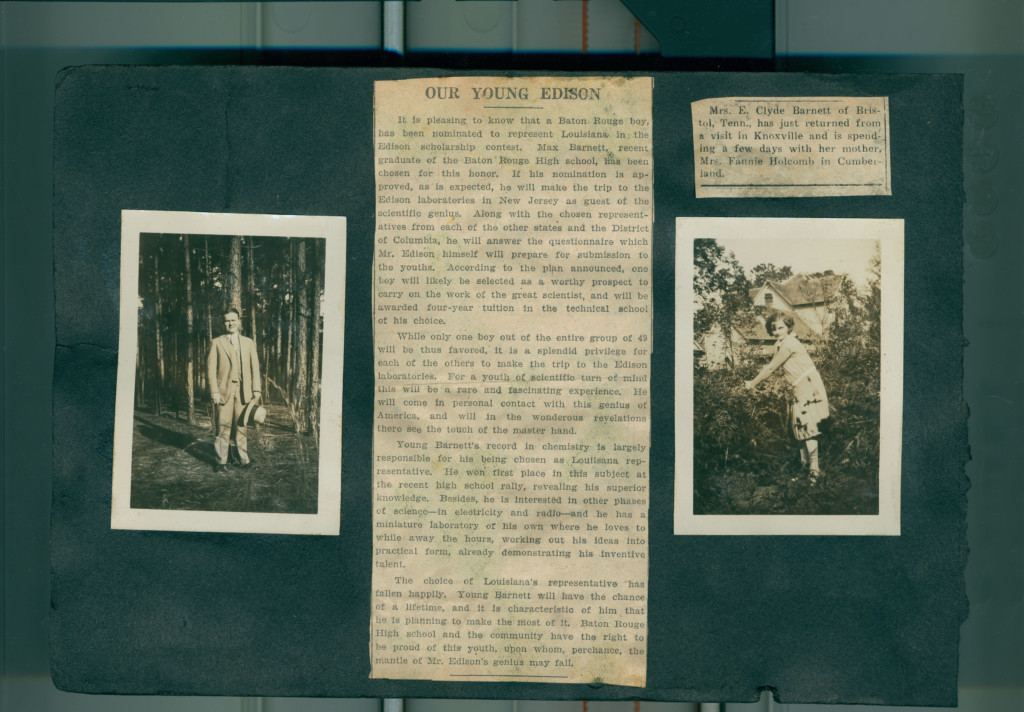 OUR YOUNG EDISON
It is pleasing to know that a Baton Rouge boy,
has been nominated to represent Louisiana in the
Edison scholarship contest. Max Barnett, recent
graduate of the Baton Rouge High school, has been
chosen for this honor. If his nomination is ap-
proved, as is expected, he will make the trip to the
Edison laboratories in New Jersey as guest of the
scientific genius. Along with the chosen represent-
atives from each of the other states and the District
of Columbia, he will answer the questionnaire which
Mr. Edison himself will prepare for submission to
the youths. According to the plan announced, one
boy will likely be selected as a worthy prospect to
carry on the work of the great scientist, and will be
awarded four-year tuition in the technical school
of his choice.
While only one boy out of the entire group of 49
will be thus favored, it is a splendid privilege for
each of the others to make the trip to the Edison
laboratories. For a youth of scientific turn of mind
this will be a rare and fascinating experience. He
will come in personal contact with this genius of
America, and will in the wonderous revelations
there see the touch of the master hand.
Young Barnett's record in chemistry is largely
responsible for his being chosen as Louisiana rep-
resentative. He won first place in this subject at
the recent high school rally, revealing his superior
knowledge. Besides, he is interested in other phases
of science—in electricity and radio—and he has a
miniature laboratory of his own where he loves to
while away the hours, working out his ideas into
practical form, already demonstrating his inventive
talent.
The choice of Louisiana's representative has
fallen happily. Young Barnett will have the chance
of a lifetime, and it is characteristic of him that
he is planning to make the most of it. Baton Rouge
High school and the community have the right to
be proud of this youth, upon whom, perchance, the
mantle of Mr. Edison's genius may fall.
Mrs. E. Clyde Barnett of Bris-
tol, Tenn., has just returned from
a visit in Knoxville and is spend-
ing a few days with her mother,
Mrs. Fannie Holcomb in Cumber-
land.